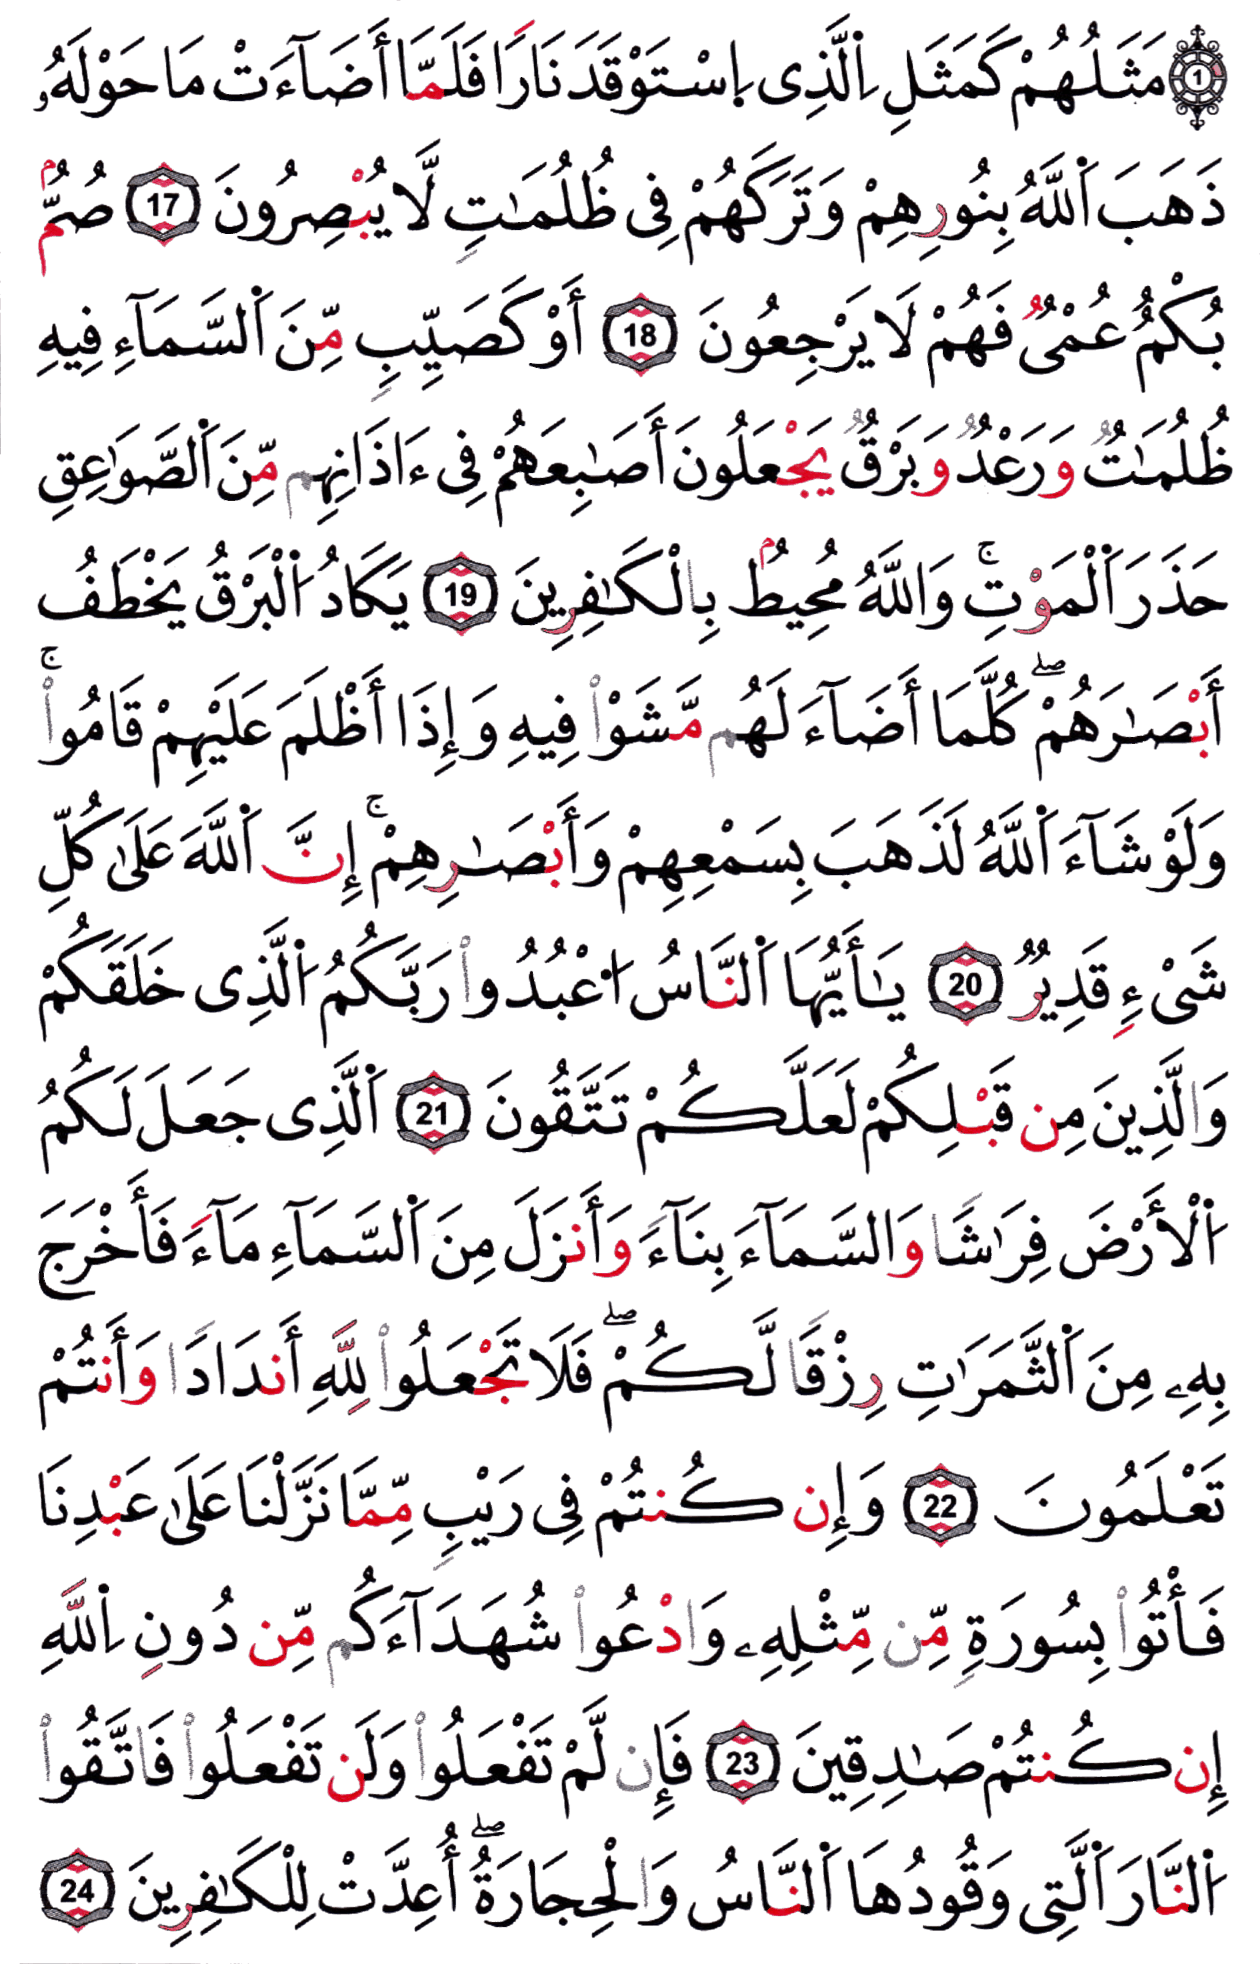 ١ مَثَلُهُمْ كَمَثَلِ اِ۬لَّذِى اِ۪سْتَوْقَدَ نَارًا فَلَمَّا أَضَآءَتْ مَا حَوْلَهُۥ
ذَهَبَ اَ۬للَّهُ بِنُورِهِمْ وَتَرَكَهُمْ فِى ظُلُمَٰتٍ لَّا يُبْصِرُونَ 17 صُمُّۢ
بُكْمٌ عُمْىٌ فَهُمْ لَا يَرْجِعُونَ 18 أَوْ كَصَيِّبٍ مِّنَ اَ۬لسَّمَآءِ فِيهِ
ظُلُمَٰتٌ وَرَعْدٌ وَبَرْقٌ يَجْعَلُونَ أَصَٰبِعَهُمْ فِى ءَاذَانِهِم مِّنَ اَ۬لصَّوَٰعِقِ
حَذَرَ اَ۬لْمَوْتِۚ وَاللَّهُ مُحِيطُۢ بِالْكَٰفِرِينَ 19 يَكَادُ اُ۬لْبَرْقُ يَخْطَفُ
أَبْصَٰرَهُمْۖ كُلَّمَا أَضَآءَ لَهُم مَّشَوْا۟ فِيهِ وَإِذَا أَظْلَمَ عَلَيْهِمْ قَامُوا۟ۚ
وَلَوْ شَآءَ اَ۬للَّهُ لَذَهَبَ بِسَمْعِهِمْ وَأَبْصَٰرِهِمْۚ إِنَّ اَ۬للَّهَ عَلَىٰ كُلِّ
شَىْءٍ قَدِيرٌ 20 يَٰأَيُّهَا اَ۬لنَّاسُ اُ۟عْبُدُوا۟ رَبَّكُمُ اُ۬لَّذِى خَلَقَكُمْ
وَالَّذِينَ مِن قَبْلِكُمْ لَعَلَّكُمْ تَتَّقُونَ 21 اَ۬لَّذِى جَعَلَ لَكُمُ
اُ۬لْأَرْضَ فِرَٰشًا وَالسَّمَآءَ بِنَآءً وَأَنزَلَ مِنَ اَ۬لسَّمَآءِ مَآءً فَأَخْرَجَ
بِهِۦ مِنَ اَ۬لثَّمَرَٰتِ رِزْقًا لَّكُمْۖ فَلَا تَجْعَلُوا۟ لِلَّهِ أَندَادًا وَأَنتُمْ
تَعْلَمُونَ 22 وَإِن كُنتُمْ فِى رَيْبٍ مِّمَّا نَزَّلْنَا عَلَىٰ عَبْدِنَا
فَأْتُوا۟ بِسُورَةٍ مِّن مِّثْلِهِۦ وَادْعُوا۟ شُهَدَآءَكُم مِّن دُونِ اِ۬للَّهِ
إِن كُنتُمْ صَٰدِقِينَ 23 فَإِن لَّمْ تَفْعَلُوا۟ وَلَن تَفْعَلُوا۟ فَاتَّقُوا۟
اُ۬لنَّارَ اَ۬لَّتِى وَقُودُهَا اَ۬لنَّاسُ وَالْحِجَارَةُۖ أُعِدَّتْ لِلْكَٰفِرِينَ 24